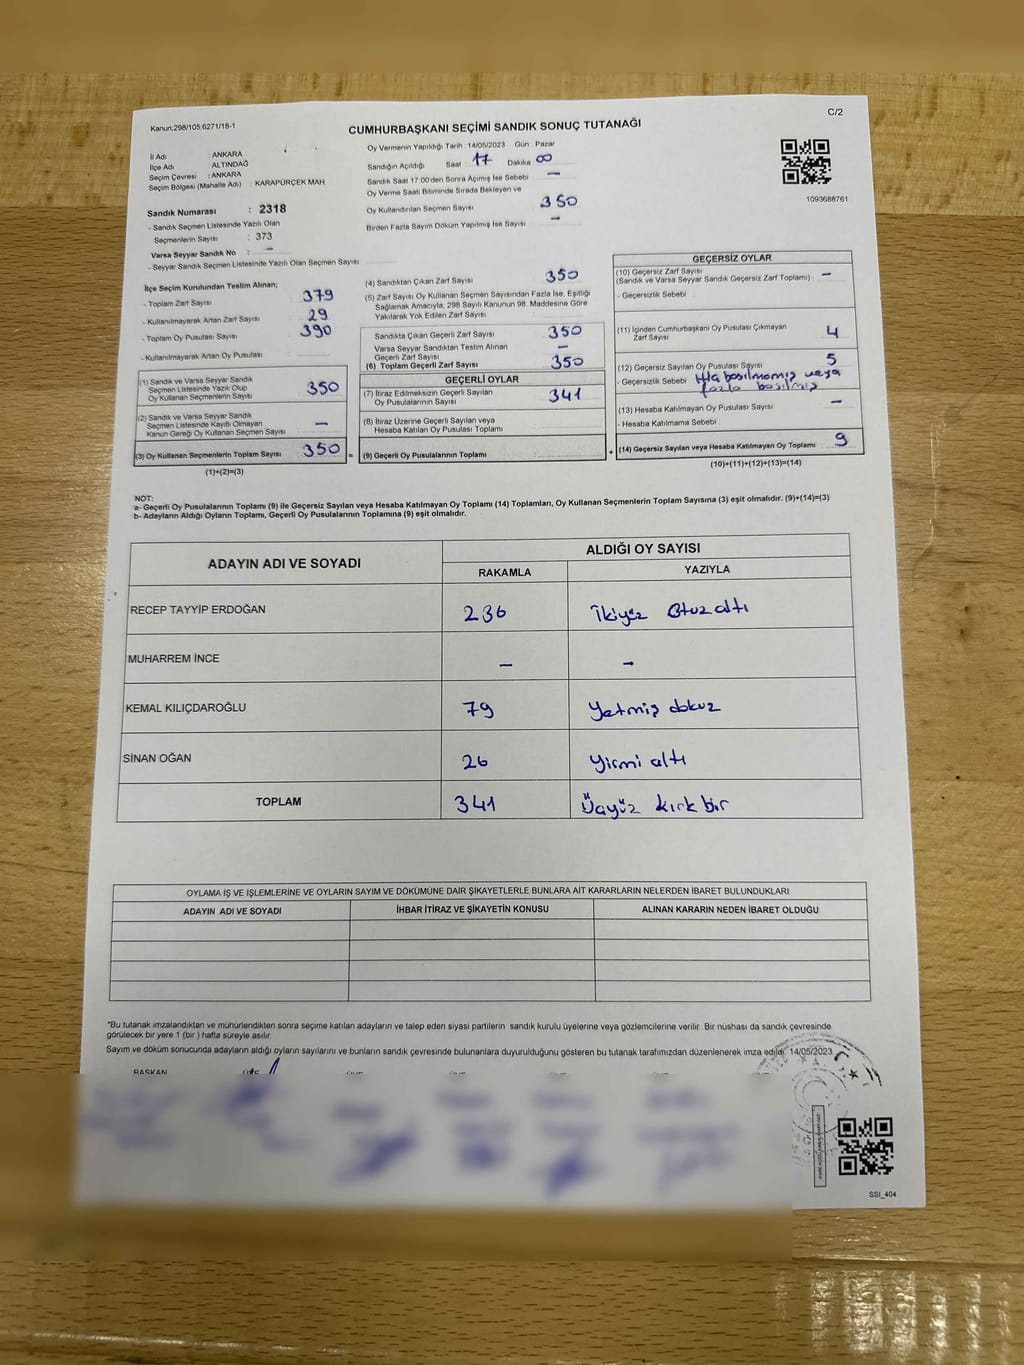 C/2
Kanun,298/105,6271/18-1
CUMHURBAŞKANI SEÇİMİ SANDIK SONUÇ TUTANAĞI
İl Adı : ANKARA
İlçe Adı : ALTINDAĞ
Seçim Çevresi : ANKARA
Seçim Bölgesi (Mahalle Adı) : KARAPÜRÇEK MAH.
Sandık Numarası : 2318
- Sandık Seçmen Listesinde Yazılı Olan
Seçmenlerin Sayısı : 373
Varsa Seyyar Sandık No : –
- Seyyar Sandık Seçmen Listesinde Yazılı Olan Seçmen Sayısı
Oy Vermenin Yapıldığı Tarih : 14/05/2023 Gün : Pazar
Sandığın Açıldığı Saat : 17 Dakika : 00
Sandık Saat 17.00'den Sonra Açımış İse Sebebi –
Oy Verme Saati Bitiminde Sırada Bekleyen ve
Oy Kullandırılan Seçmen Sayısı 350
Birden Fazla Sayım Döküm Yapılmış İse Sayısı –
1093688761
İlçe Seçim Kurulundan Teslim Alınan;
- Toplam Zarf Sayısı 379
- Kullanılmayarak Artan Zarf Sayısı 29
- Toplam Oy Pusulası Sayısı 390
- Kullanılmayarak Artan Oy Pusulası
(1) Sandık ve Varsa Seyyar Sandık
Seçmen Listesinde Yazılı Olup
Oy Kullanan Seçmenlerin Sayısı 350
(2) Sandık ve Varsa Seyyar Sandık
Seçmen Listesinde Kayıtlı Olmayan
Kanun Gereği Oy Kullanan Seçmen Sayısı –
(3) Oy Kullanan Seçmenlerin Toplam Sayısı 350 =
(1)+(2)=(3)
(4) Sandıktan Çıkan Zarf Sayısı 350
(5) Zarf Sayısı Oy Kullanan Seçmen Sayısından Fazla İse, Eşitliği
Sağlamak Amacıyla, 298 Sayılı Kanunun 98. Maddesine Göre
Yakılarak Yok Edilen Zarf Sayısı :
Sandıkta Çıkan Geçerli Zarf Sayısı 350
Varsa Seyyar Sandıktan Teslim Alınan
Geçerli Zarf Sayısı –
(6) Toplam Geçerli Zarf Sayısı 350
GEÇERLİ OYLAR
(7) İtiraz Edilmeksizin Geçerli Sayılan
Oy Pusulalarının Sayısı 341
(8) İtiraz Üzerine Geçerli Sayılan veya
Hesaba Katılan Oy Pusulası Toplamı
(9) Geçerli Oy Pusulalarının Toplamı +
GEÇERSİZ OYLAR
(10) Geçersiz Zarf Sayısı
(Sandık ve Varsa Seyyar Sandık Geçersiz Zarf Toplamı) : –
- Geçersizlik Sebebi
(11) İçinden Cumhurbaşkanı Oy Pusulası Çıkmayan
Zarf Sayısı 4
(12) Geçersiz Sayılan Oy Pusulası Sayısı 5
- Geçersizlik Sebebi basılmamış veya
fazla basılmış
(13) Hesaba Katılmayan Oy Pusulası Sayısı –
- Hesaba Katılmama Sebebi :
(14) Geçersiz Sayılan veya Hesaba Katılmayan Oy Toplamı 9
(10)+(11)+(12)+(13)=(14)
NOT:
a- Geçerli Oy Pusulalarının Toplamı (9) ile Geçersiz Sayılan veya Hesaba Katılmayan Oy Toplamı (14) Toplamları, Oy Kullanan Seçmenlerin Toplam Sayısına (3) eşit olmalıdır. (9)+(14)=(3)
b- Adayların Aldığı Oyların Toplamı, Geçerli Oy Pusulalarının Toplamına (9) eşit olmalıdır.
ADAYIN ADI VE SOYADI ALDIĞI OY SAYISI
RAKAMLA YAZIYLA
RECEP TAYYİP ERDOĞAN 236 İkiyüz Otuzaltı
MUHARREM İNCE – –
KEMAL KILIÇDAROĞLU 79 Yetmiş dokuz
SİNAN OĞAN 26 Yirmi altı
TOPLAM 341 Üçyüz kırk bir
OYLAMA İŞ VE İŞLEMLERİNE VE OYLARIN SAYIM VE DÖKÜMÜNE DAİR ŞİKAYETLERLE BUNLARA AİT KARARLARIN NELERDEN İBARET BULUNDUKLARI
ADAYIN ADI VE SOYADI İHBAR İTİRAZ VE ŞİKAYETİN KONUSU ALINAN KARARIN NEDEN İBARET OLDUĞU
*Bu tutanak imzalandıktan ve mühürlendikten sonra seçime katılan adayların ve talep eden siyasi partilerin sandık kurulu üyelerine veya gözlemcilerine verilir. Bir nüshası da sandık çevresinde
görülecek bir yere 1 (bir ) hafta süreyle asılır.
Sayım ve döküm sonucunda adayların aldığı oyların sayılarını ve bunların sandık çevresinde bulunanlara duyurulduğunu gösteren bu tutanak tarafımızdan düzenlenerek imza edildi. 14/05/2023
BAŞKAN
SSI_404